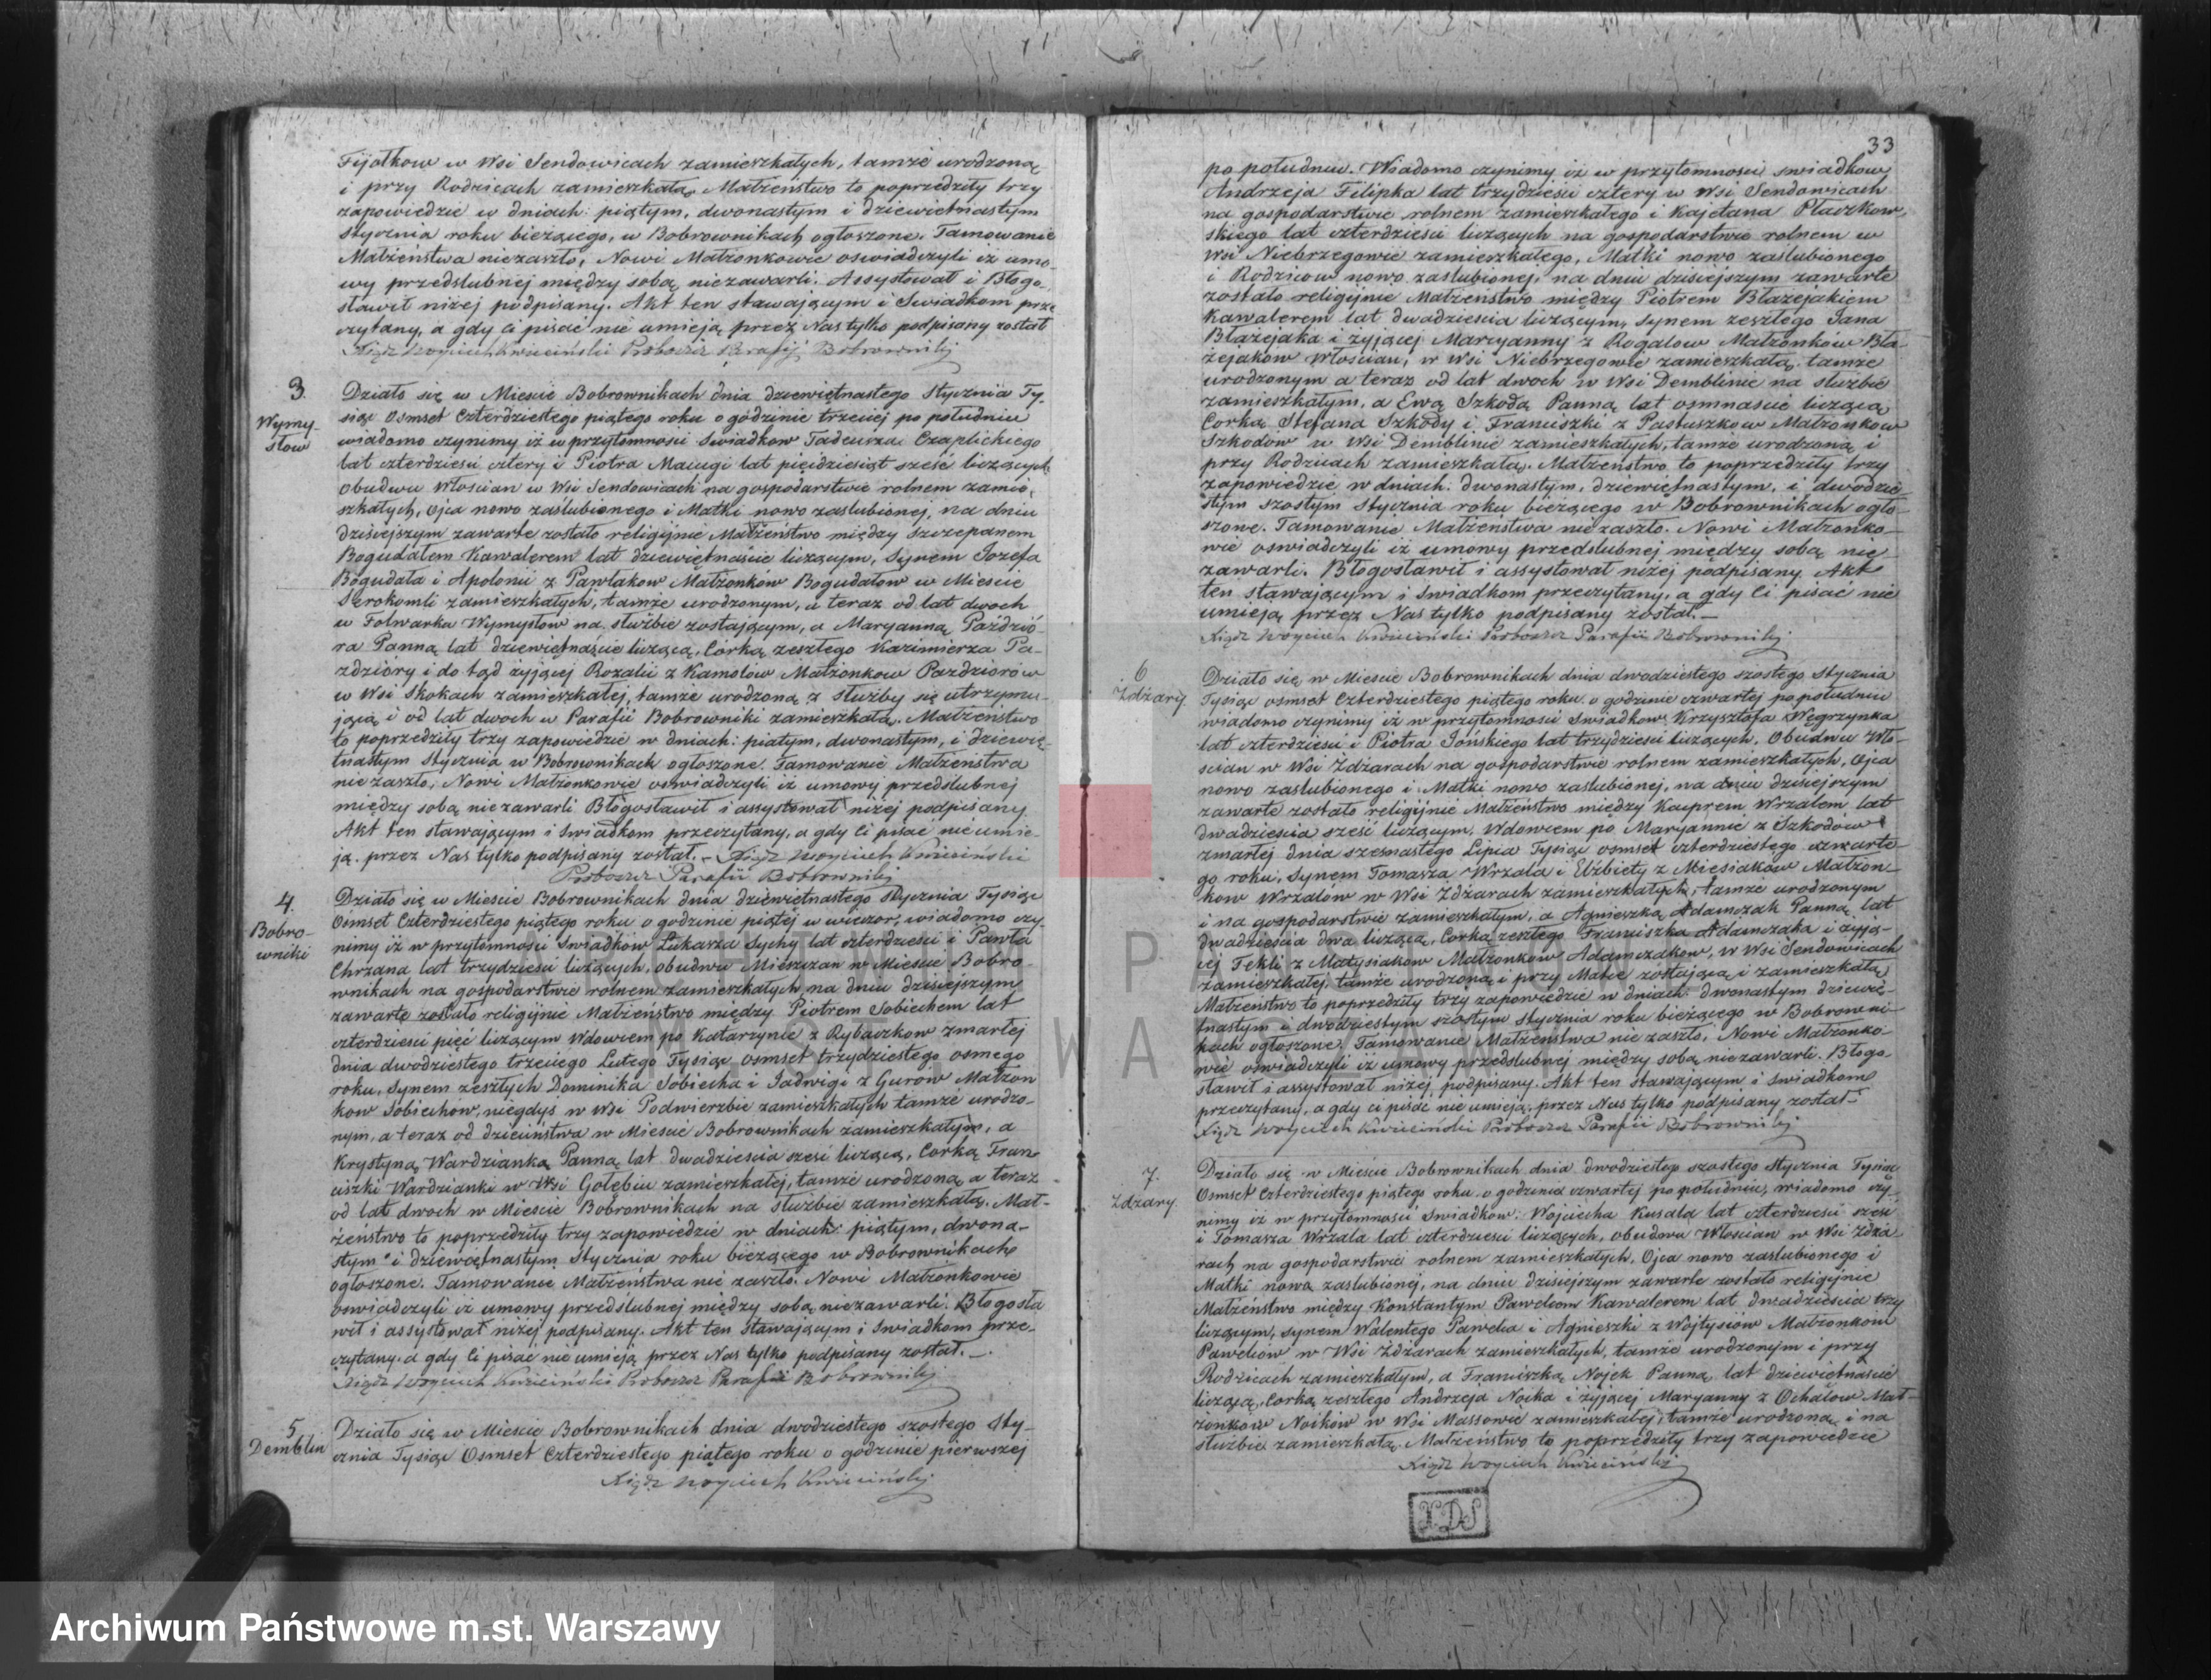 Fijołkow w Wsi Sendowicach zamieszkałych, tamże urodzoną
i przy Rodzicach zamieszkałą. Małżeństwo to poprzedziły trzy
zapowiedzie w dniach: piątym, dwonastym i dziewiętnastym
Stycznia roku bieżącego, w Bobrownikach ogłoszone. Tamowanie
Małżeństwa niezaszło, Nowi Małżonkowie oswiadczyli iż umo-
wy przedślubnej między sobą niezawarli. Assystował i Błogo-
sławił niżej podpisany. Akt ten stawającym i Swiadkom prze
czytany, a gdy ci pisać nie umieją przez Nas tylko podpisany został
Xiądz Woyciech Kwieciński Proboszcz Parafij Bobrownikij
3.
Wymy-
słow
Działo się w Miescie Bobrownikach dnia dziewiętnastego Stycznia Ty-
siąc Osmset Czterdziestego piątego roku o godzinie trzeciej po południu
wiadomo czynimy iż w przytomnosci Swiadkow Tadeusza Czaplickiego
lat czterdziesci cztery i Piotra Maciugi lat pięćdziesiąt sześć liczących
Obudwu Włoscian w Wsi Sendowicach na gospodarstwie rolnem zamie-
szkałych, ojca nowo zaślubionego i Matki nowo zaslubionej, na dniu
dzisiejszym zawarte zostało religijnie Małżeństwo między Szczepanem
Bogudałem Kawalerem lat dziewiętnaście liczącym, Synem Jozefa
Bogudała i Apolonii z Pawlakow Małżonków Bogudałow w Miescie
Serokomli zamieszkałych, tamże urodzonym, a teraz od lat dwoch
w Folwarku Wymysłow na służbie zostającym, a Maryanną Paździó-
ra Panną lat dziewiętnaście liczącą, Córką zeszłego Kazimierza Pa-
zdzióry i do tąd żyjącej Rozalii z Kamolów Małżonkow Pazdziorów
w Wsi Skokach zamieszkałej, tamże urodzoną z służby się utrzymu-
jącą i od lat dwoch w Parafii Bobrowniki zamieszkałą. Małżeństwo
to poprzedziły trzy zapowiedzie w dniach: piątym, dwonastym, i dziewię-
tnastym Stycznia w Bobrownikach ogłoszone. Tamowanie Małżenstwa
nie zaszło, Nowi Małżonkowie oswiadczyli iż umowy przedślubnej
między sobą niezawarli Błogosławił i assystował niżej podpisany
Akt ten stawającym i Swiadkom przeczytany, a gdy Ci pisac nie umie-
ją przez Nas tylko podpisany został. – Xiądz Woyciech Kwieciński
Proboszcz Parafii Bobrownikij
4.
Bobro-
wniki
Działo się w Miescie Bobrownikach dnia dziewiętnastego Stycznia Tysiąc
Osmset Czterdziestego piątego roku o godzinie piątej w wieczor, wiadomo czy-
nimy iż w przytomnosci Swiadków Łukasza Sychy lat czterdziesci i Pawła
Chrzana lat trzydziesci liczących, obudwu Mieszczan w Miescie Bobro-
wnikach na gospodarstwie rolnem zamieszkałych, na dniu dzisiejszym
zawarte zostało religijnie Małżeństwo między Piotrem Sobiechem lat
czterdziesci pięć liczącym Wdowcem po Katarzynie z Rybaczkow zmarłej
dnia dwodziestego trzeciego Lutego Tysiąc osmset trzydziestego osmego
roku, Synem zeszłych Dominika Sobiecha i Jadwigi z Gurow Małżon
kow Sobiechów, niegdyś w Wsi Podwierzbie zamieszkałych tamże urodzo-
nym, a teraz od dzieciństwa w Miescie Bobrownikach zamieszkałym, a
Krystyną Wardzianką Panną lat dwadziescia szesc liczącą, Corką Fran-
ciszki Wardzianki w Wsi Gołębiu zamieszkałej, tamże urodzoną a teraz
od lat dwoch w Miescie Bobrownikach na służbie zamieszkałą. Mał-
żeństwo to poprzedziły trzy zapowiedzie w dniach: piątym, dwona-
stym i dziewiętnastym Stycznia roku bieżącego w Bobrownikach
ogłoszone. Tamowanie Małżeństwa nie zaszło. Nowi Małżonkowie
oswiadczyli iż umowy przedślubnej między sobą niezawarli. Błogosła
wił i assystował niżej podpisany. Akt ten stawającym i Swiadkom prze-
czytany, a gdy Ci pisać nie umieją przez Nas tylko podpisany został. –
Xiądz Woyciech Kwieciński Proboszcz Parafii Bobrownikij
5
Demblin
Działo się w Miescie Bobrownikach dnia dwodziestego szostego Sty-
cznia Tysiąc Osmset Czterdziestego piątego roku o godzinie pierwszej
Xiądz Woyciech Kwieciński
33
po południu. Wiadomo czynimy iż w przytomnosci swiadkow
Andrzeja Filipka lat trzydziesci cztery w Wsi Sendowicach
na gospodarstwie rolnem zamieszkałego i Kajetana Płaczkow-
skiego lat czterdziesci liczących na gospodarstwie rolnem w
Wsi Niebrzegowie zamieszkałego, Matki nowo zaslubionego
i Rodzicow nowo zaslubionej, na dniu dzisiejszym zawarte
zostało religijnie Małżenstwo między Piotrem Błażejakiem
Kawalerem lat dwadziescia liczącym, Synem zeszłego Jana
Błażejaka i żyjącej Maryanny z Rogalow Małżonkow Bła-
żejakow Włościan, w Wsi Niebrzegowie zamieszkałą, tamże
urodzonym a teraz od lat dwoch w Wsi Demblinie na służbie
zamieszkałym, a Ewą Szkodą Panną lat osmnascie liczącą
Corką Stefana Szkody i Franciszki z Pastuszkow Małżonkow
Szkodów w Wsi Demblinie zamieszkałych, tamże urodzoną i
przy Rodzicach zamieszkałą. Małżeństwo to poprzedziły trzy
zapowiedzie w dniach: dwonastym, dziewiętnastym, i dwodzie-
stym szostym Stycznia roku bieżącego w Bobrownikach ogło-
szone. Tamowanie Małżeństwa nie zaszło. Nowi Małżonko-
wie oswiadczyli iż umowy przedslubnej między sobą nie-
zawarli. Błogosławił i assystował niżej podpisany. Akt
ten stawającym i Swiadkom przeczytany, a gdy Ci pisać nie
umieją przez Nas tylko podpisany został. –
Xiądz Woyciech Kwieciński Proboszcz Parafii Bobrownikij
6
Zdżary.
Działo się w Miescie Bobrownikach dnia dwodziestego szostego Stycznia
Tysiąc osmset Czterdziestego piątego roku o godzinie czwartej po południu
wiadomo czynimy iż w przytomnosci Swiadkow Krzysztofa Węgrzynka
lat czterdziesci i Piotra Jońskiego lat trzydziesci liczących, Obudwu Wło-
scian w Wsi Zdżarach na gospodarstwie rolnem zamieszkałych, Ojca
nowo zaslubionego i Matki nowo zaslubionej, na dniu dzisiejszym
zawarte zostało religijnie Małżeństwo między Kacprem Wrzalem lat
dwadziescia szesć liczącym, Wdowcem po Maryannie z Szkodów
zmarłej dnia szesnastego Lipca Tysiąc osmset czterdziestego czwarte-
go roku, Synem Tomasza Wrzala i Elżbiety z Miesiaków Małżon-
kow Wrzalów w Wsi Zdżarach zamieszkałych, tamże urodzonym
i na gospodarstwie zamieszkałym, a Agnieszką Adamczak Panną lat
dwadziescia dwa liczącą, Corką zeszłego Franciszka Adamczaka i żyją-
cej Tekli z Matysiakow Małżonków Adamczakow, w Wsi Sendowicach
zamieszkałej, tamże urodzoną i przy Matce zostającą i zamieszkałą
Małżeństwo to poprzedziły trzy zapowiedzie w dniach: dwonastym dziewię-
tnastym i dwodziestym szostym Stycznia roku bieżącego w Bobrowni-
kach ogłoszone. Tamowanie Małżeństwa nie zaszło, Nowi Małżonko-
wie oswiadczyli iż umowy przedslubnej między sobą niezawarli. Błogo-
sławił i assystował niżej podpisany. Akt ten stawającym i Swiadkom
przeczytany, a gdy ci pisać nie umieją, przez Nas tylko podpisany został –
Xiądz Woyciech Kwieciński Proboszcz Parafii Bobrownikij
7.
Zdżary.
Działo się w Miescie Bobrownikach dnia dwodziestego szostego Stycznia Tysiąc
Osmset Czterdziestego piątego roku o godzinie czwartej po południu, wiadomo czy-
nimy iż w przytomnosci Swiadkow: Wojciecha Kusala lat czterdziesci szesc
i Tomasza Wrzala lat czterdziesci liczących, obudwu Włoscian w Wsi Zdża-
rach na gospodarstwie rolnem zamieszkałych, Ojca nowo zaslubionego i
Matki nowo zaslubionej, na dniu dzisiejszym zawarte zostało religijnie
Małżeństwo między Konstantym Pawelcem Kawalerem lat dwadziescia trzy
liczącym, synem Walentego Pawelca i Agnieszki z Wojtysiow Małżonkow
Pawelców w Wsi Zdżarach zamieszkałych, tamże urodzonym i przy
Rodzicach zamieszkałym, a Franciszką Nojek Panną lat dziewiętnaście
liczącą, Corką zeszłego Andrzeja Noika i żyjącej Maryanny z Ochalow Mał-
żonków Noików w Wsi Massowie zamieszkałej, tamże urodzoną i na
służbie zamieszkałą. Małżeństwo to poprzedziły trzy zapowiedzie
Xiądz Woyciech Kwieciński
XDS
ARCHIWUM PAŃSTWOWE
M.ST. WARSZAWY
Archiwum Państwowe m.st. Warszawy